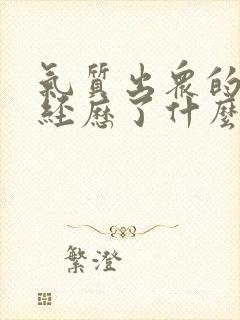 氣質出衆的
經歷了什麼
繁澄